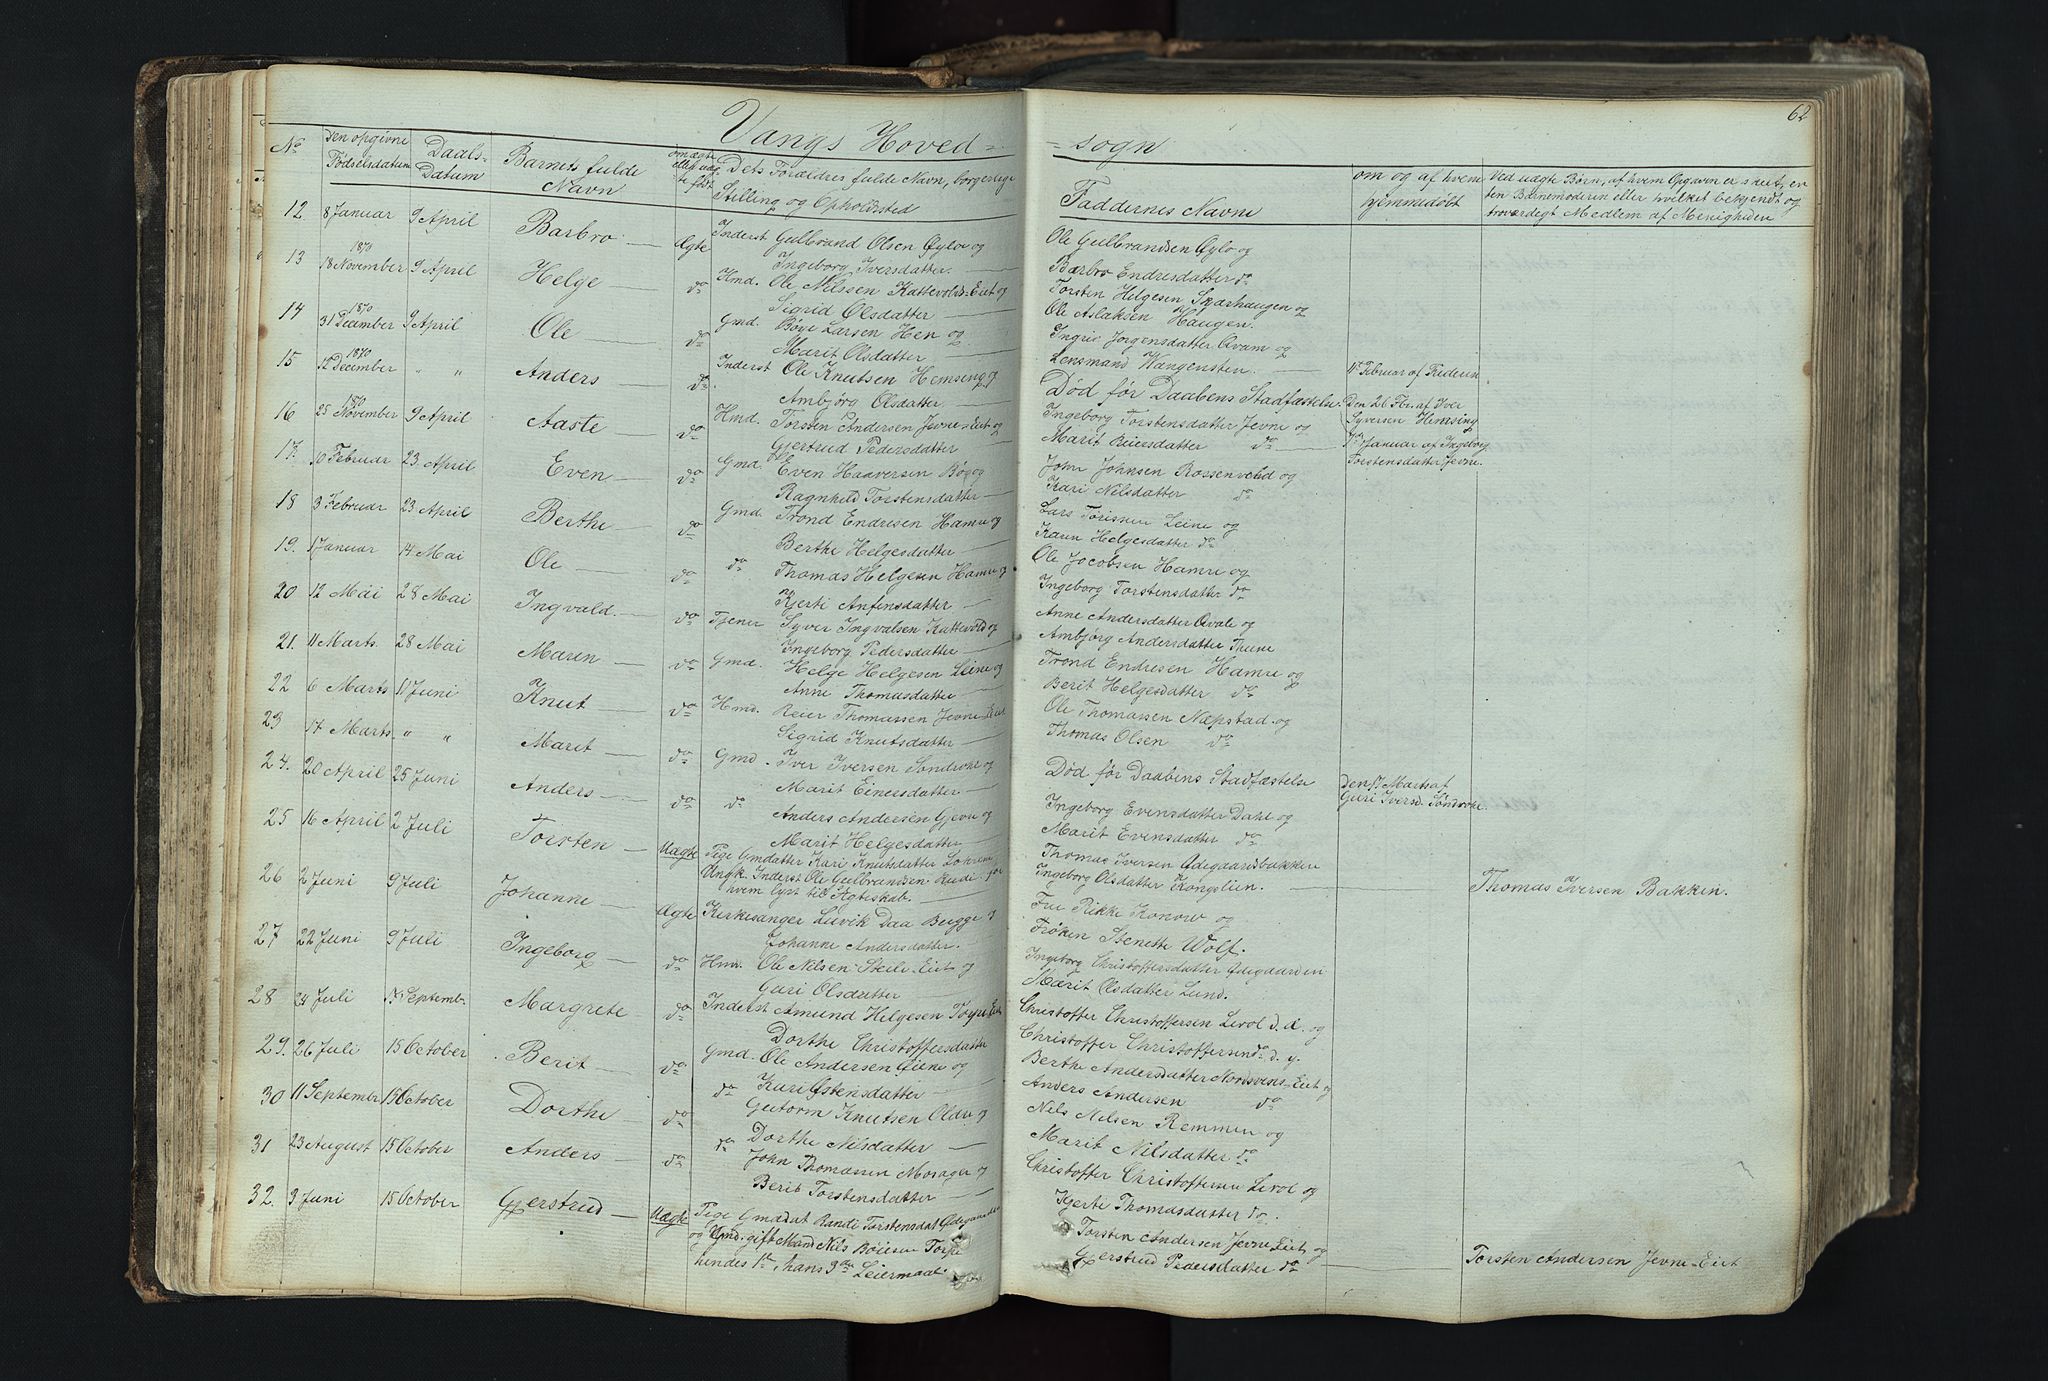 62
Vangs Hoved = = sogn
No
den opgivne Fødselsdatum
Daabs-Datum
Barnets fulde Navn
om ægte eller uægte født
Dets Forældres fulde Navn, borgerlige Stilling og Opholdsted
Faddernes Navne
om og af hvem hjemmedøbt
Ved uægte Børn, af hvem Opgaven er skeet, enten Barnemoderen eller hvilket bekjendt og troværdigt Medlem af Menigheden
12. 8 Januar 9 April Barbro Ægte Inderst Gulbrand Olsen Øylo og
Ingeborg Iversdatter.
Ole Gulbrandsen Øylo og
Barbro Endresdatter do
13 1870 18 November 9 April Helge do Hmd. Ole Nilssen Kattevolds-Eiet og
Sigrid Olsdatter
Torsten Helgesen Skjærhaugen og
Ole Aslaksen Haugen.
14 1870 31 December 9 April Ole do Gmd. Bøye Larsen Hen og
Marit Olsdatter
Ingrid Jørgensdatter Qvam og
Lensmand Wangensten.
15 1870 12 December " " Anders do Inderst Ole Knutsen Hemsing og
Ambjørg Olsdatter
Død før Daabens Stadfæstelse.
Den 26 Fbr. af Iver
Syversen Hemsing
16 1870 25 November 9 April Aaste do Hmd. Torsten Andersen Jevne-Eiet og
Gjertrud Pedersdatter
Ingeborg Torstensdatter Jevne og
Marit Reiersdatter do
Januar af Ingeborg
Torstensdatter Jevne.
17. 10 Februar 23. April Even do Gmd. Even Haaversen Bøe og
Ragnhild Torstensdatter
John Johnsen Rossenvold og
Kari Nilsdatter do
18 3 Februar 23 April Berthe do Gmd. Trond Endresen Hamre og
Berthe Helgesdatter
Lars Torissen Leine og
Karen Helgesdatter do
19. 1 Januar 14 Mai Ole do do Thomas Helgesen Hamre og
Kjerti Anfinsdatter
Ole Jocobsen Hamre og
Ingeborg Torstensdatter do
20 12 Mai 28 Mai Ingvald. do Tjener Syver Ingvalsen Kattevold og
Ingeborg Pedersdatter
Anne Andersdatter Qvale og
Ambjørg Andersdatter Thune
21. 11 Marts. 28 Mai Maren do Gmd. Helge Helgesen Leine og
Anne Thomasdatter
Trond Endresen Hamre og
Berit Helgesdatter do
22 6 Marts 11 Juni Knut do Hmd. Reier Thomassen Jevne-Eiet
Sigrid Knutsdatter
Ole Thomassen Næpstad og
Thomas Olsen do
23 17 Marts. " " Marit do Gmd. Iver Iversen Søndrohr og
Marit Einersdatter
Død før Daabens Stadfæstelse
Den Marts af
Guri Iversd. Søndrohr.
24. 20 April 25 Juni Anders do do Anders Andersen Gjevre og
Marit Helgesdatter
Ingeborg Evensdatter Dahl og
Marit Evensdatter do
25 16 April 2 Juli Torsten Uægte Pige Gmdatter Kari Knutsdatter
Ungk. Inderst Ole Gulbrandsen Rudi, for
hvem lyst til Ægteskab.
Thomas Iversen Ødegaardsbakken
Ingeborg Olsdatter Kongslien.
Thomas Iversen Bakken.
26 2 Juni 9 Juli Johanne Ægte Kirkesanger Luvik Daa Bugge og
Johanne Andersdatter.
Fru Rikke Konow og
Frøken Stenette Wolf.
27 22 Juni 9 Juli Ingeborg do Hmd. Ole Nilsen Steile-Eiet og
Guri Olsdatter
Ingeborg Christoffersdatter Ødegaarden
Marit Olsdatter Lund.
28 24 Juli Septembr. Margrete do Inderst Amund Helgesen Torpe-Eiet
Dorthe Christoffersdatter
Christoffer Christoffersen Livol d. æ. og
Christoffer Christoffersen do d. y.
29. 26 Juli 15 October Berit do Gmd. Ole Andersen Øiene og
Kari Østensdatter
Berthe Andersdatter Nordsveens-Eiet og
Anders Andersen do
30 11 Septembr 15 October Dorthe do do Gutorm Knutsen Oldre og
Dorthe Nilsdatter
Nils Nilsen Remmen og
Marit Nilsdatter do
31 23 August 15 October Anders do do John Thomassen Mosager og
Berit Torstensdatter
Christoffer Christoffersen Livol og
Kjerte Thomasdatter do.
32. 3 Juni 15 October Gjerstrud Uægte Pige Gmddat Randi Torstensdat Ødegaarden
og Gmd. gift Mand Nils Bøiesen Torpe
hendes 1te, hans 3die Leiermaal.
Torsten Andersen Jevne-Eiet og
Gjerstrud Pedersdatter do
Torsten Andersen Jevne-Eiet